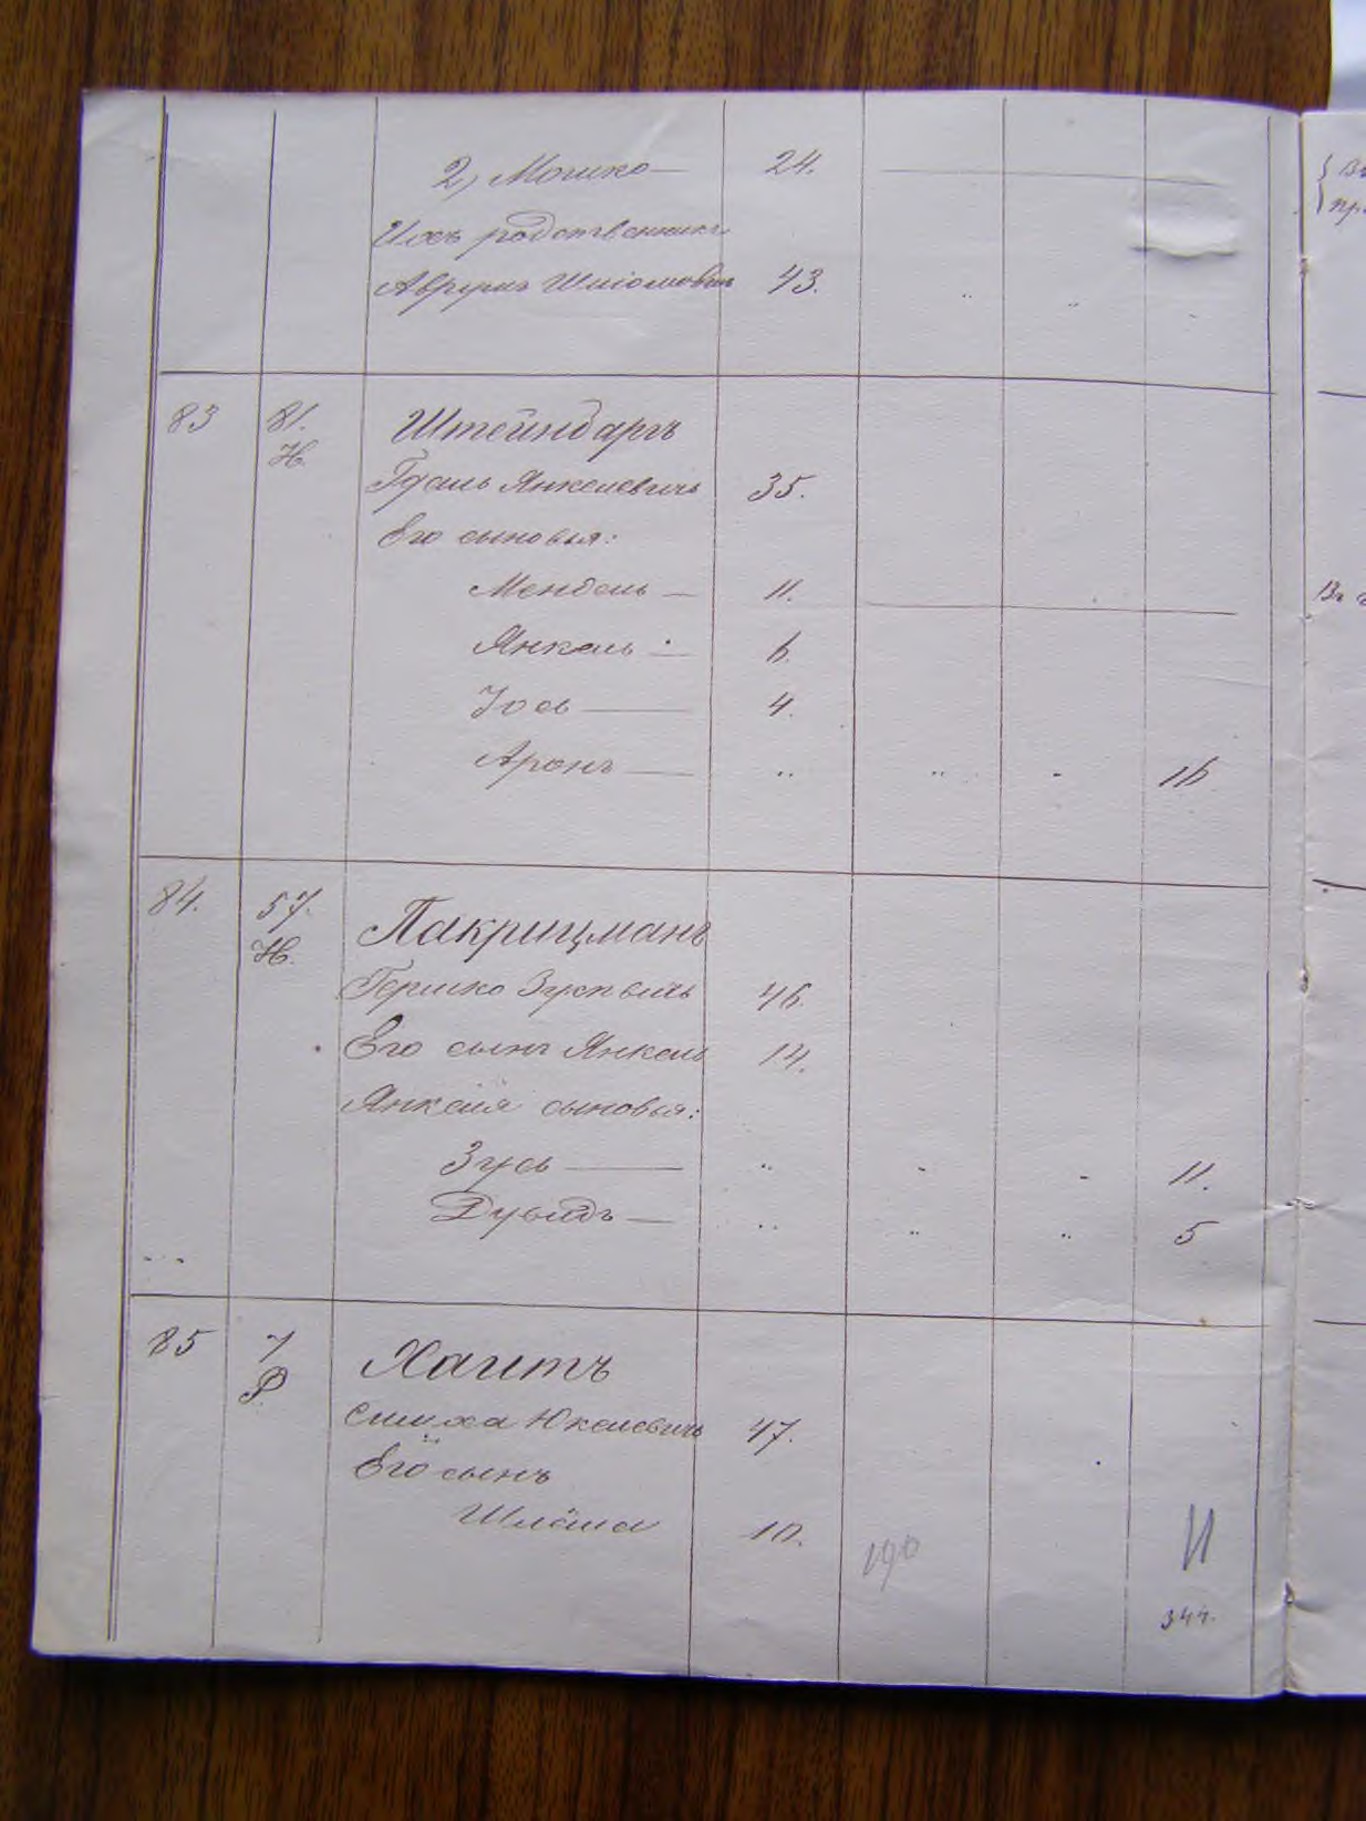 2) Мошко — 24.
Ихъ родственникъ
Аврумъ Шліомовичъ 43. " "
83 81. Штейндаръ
Н. Гдаль Янкелевичъ 35.
Его сыновья:
Мендель — 11.
Янкель — 6.
Іось — 4.
Аронъ — " " - 16
84. 57. Пакрицманъ
Н. Гершко Зусьевичъ 46.
Его сынъ Янкель 14.
Янкеля сыновья:
Зусь — " - - 11.
Дувидъ — " " " 5
85 7 Хаитъ
Р. Симха Юкелевичъ 47.
Его сынъ
Шлёма 10. 190 11
344.